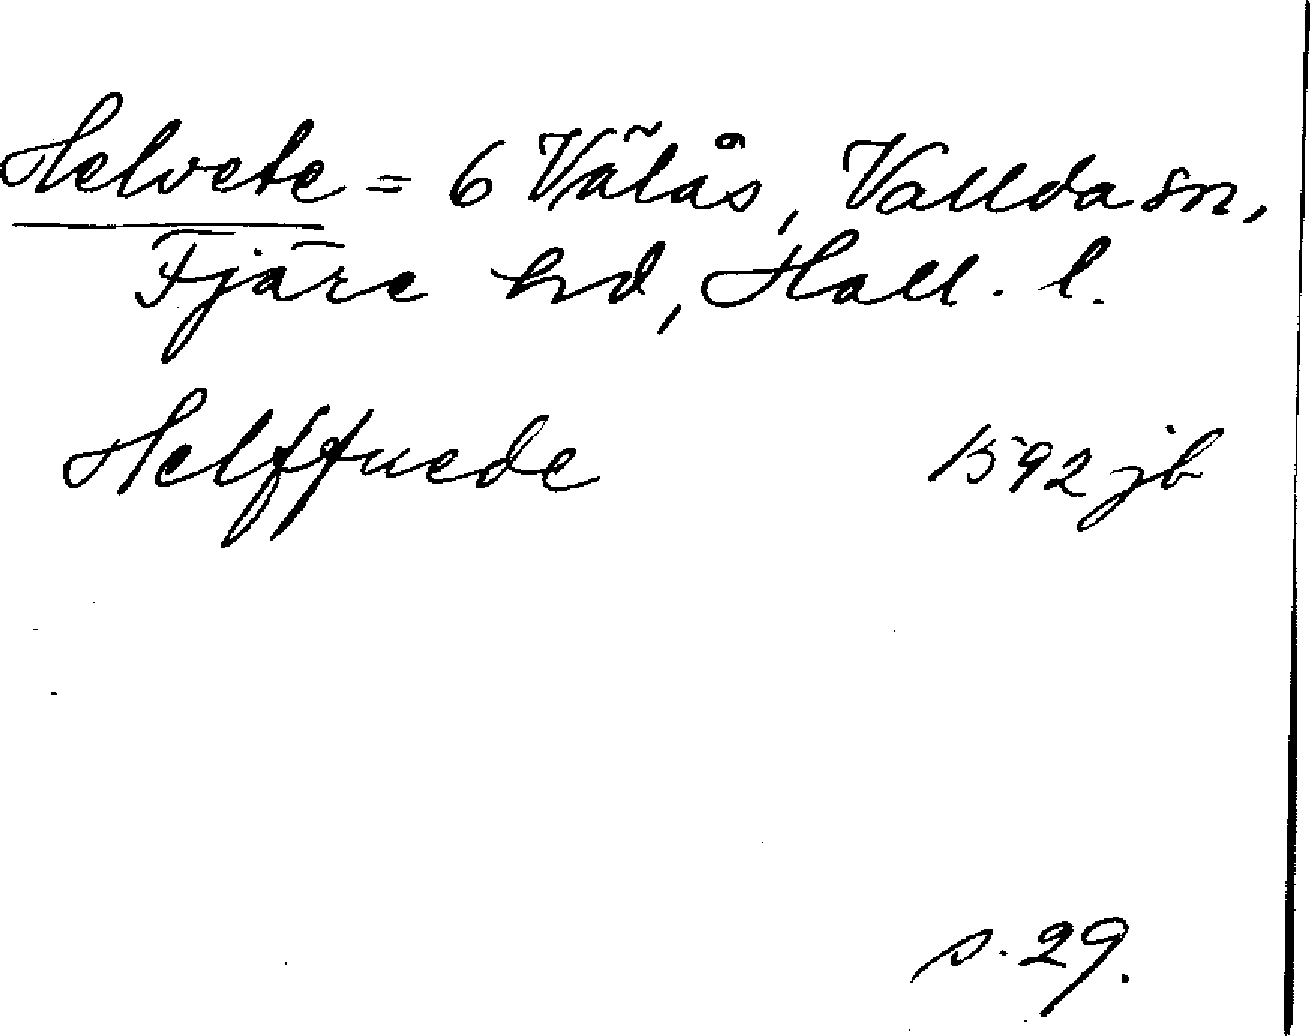 Helvete = 6 Välås, Vallda sn,
Fjäre hd, Hall. l.
Helffuede 1592 jb
s. 29.